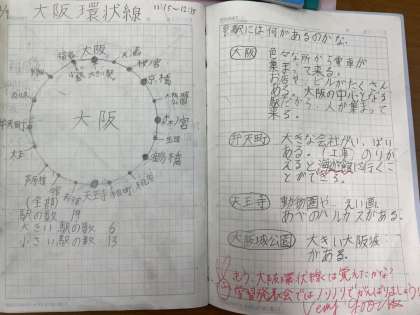 大阪環状線
11:15〜12:15
大阪
天満
桜ノ宮
京橋
大阪城公園
森ノ宮
玉造
鶴橋
桃谷
寺田町
天王寺
新今宮
今宮
芦原橋
大正
弁天町
西九条
野田
福島
大阪
(全部)
駅の数 19
大きい駅の数 6
小さい駅の数 13
駅には何があるのかな。
大阪
色々な所から電車が
集まって来る。
お店や、ビルがたくさん
ある。大阪の中心となる
駅だから、人が集まって
来る。
弁天町
大きな会社がいっぱい
ある。(工事)のりか
えると海遊館に行くこ
とができる。
天王寺
動物園や、えい画、
あべのハルカスがある。
大阪城公園
大きい大阪城
がある。
もう、大阪環状線は覚えたかな?
学習発表会ではノリノリでがんばりましょう!
Very